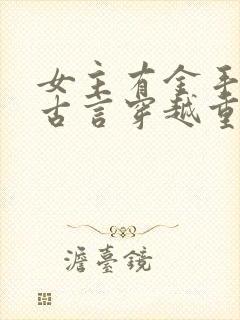 女主有金手
古言穿越重
澹臺鏡